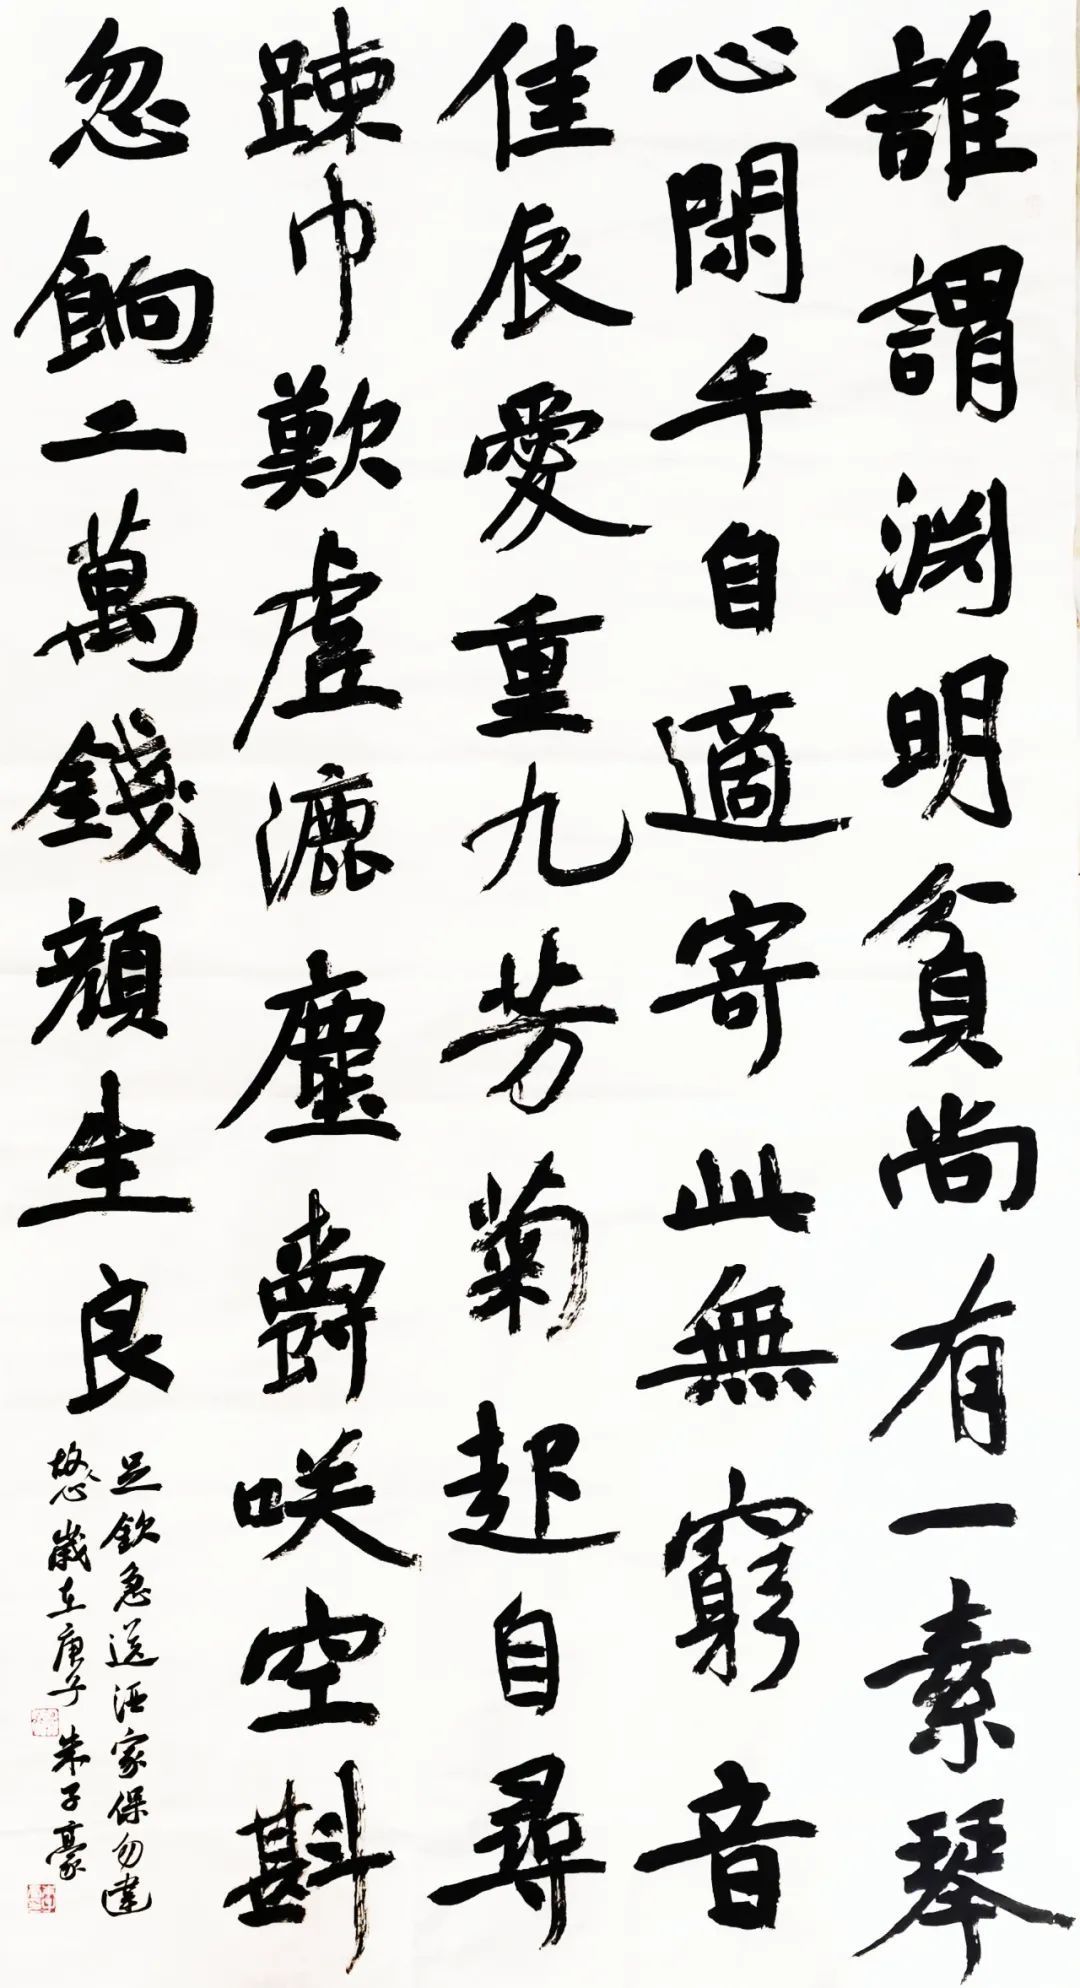 誰謂淵明貧尚有一素琴
心閑手自適寄此無窮音
佳辰愛重九芳菊起自尋
踈巾歎虛漉塵爵咲空斟
忽餉二萬錢顏生良
足欽急送酒家保勿違
故心 歲在庚子 朱子豪